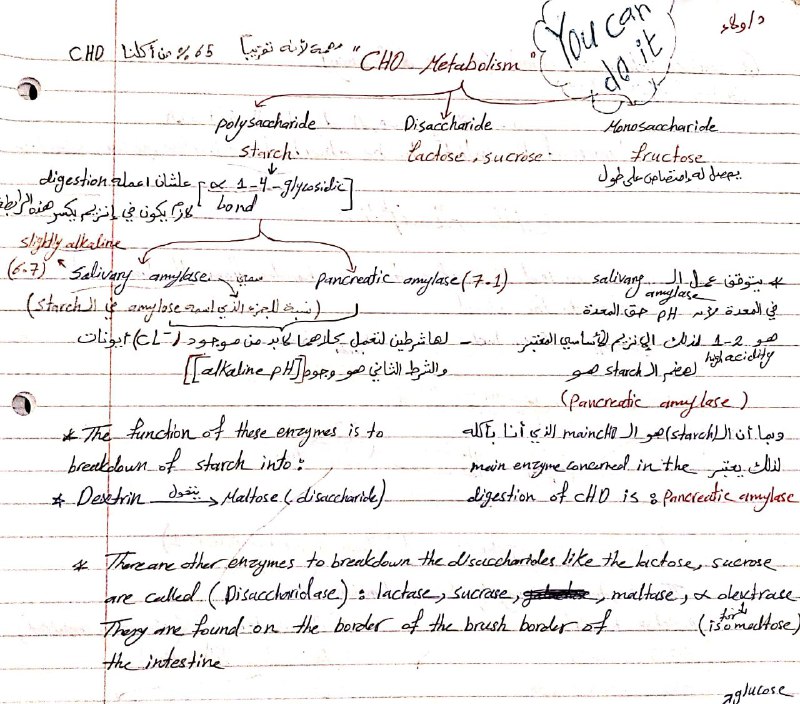 د/ولاء
You can
do it
CHO مهمة لأنه تقريباً 65% من أكلنا
"CHO Metabolism"
polysaccharide Disaccharide Monosaccharide
starch. lactose, sucrose. fructose
يحصل له امتصاص على طول
[α 1-4-glycosidic bond] علشان اعمله digestion
لازم يكون في إنزيم يكسر هذه الرابطة
slightly alkaline
(6.7) Salivary amylase سمي pancreatic amylase (7.1)
(نسبة للجزء الذي اسمه amylose في الـ starch)
- لها شرطين لتعمل بجلاهما لابد من موجود (CL-) أيونات
والشرط الثاني هو وجود [[alkaline pH]]
* يتوقف عمل الـ salivary amylase
في المعدة لأن pH حق المعدة
هو 1-2 high acidity لذلك الإنزيم الأساسي المعتبر
لهضم الـ starch هو
(Pancreatic amylase)
* The function of these enzymes is to
breakdown of starch into:
* Dextrin يتحول Maltose (disaccharide)
وبما أن الـ (starch) هو الـ main CHO الذي أنا بأكله
لذلك يعتبر main enzyme concerned in the
digestion of CHO is: Pancreatic amylase
* There are other enzymes to breakdown the disaccharides like the lactose, sucrose
are called (Disaccharidase): lactase, sucrase, maltase, α dextrase
They are found on the border of the brush border of (for the isomaltose)
the intestine
glucose